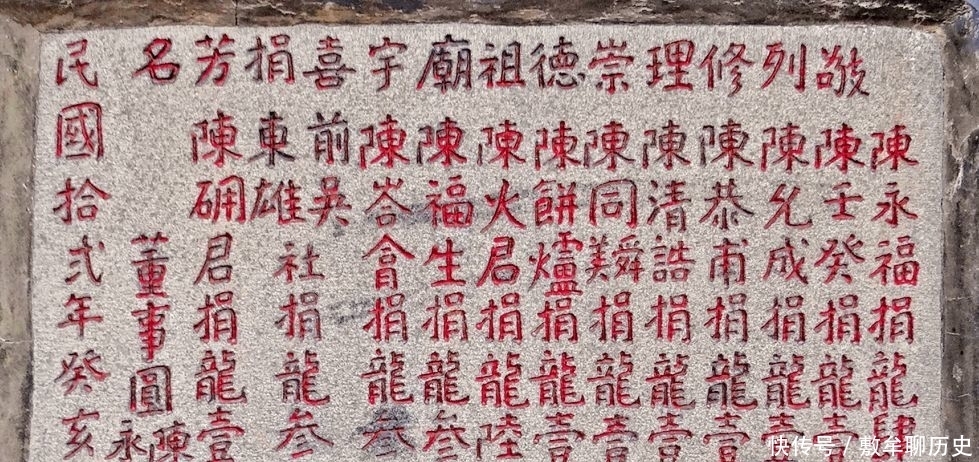 敬列修理崇德祖廟宇喜捐芳名
陳永福捐龍肆
陳壬癸捐龍壹
陳允成捐龍壹
陳恭甫捐龍壹
陳清誥捐龍壹
陳同舜美捐龍壹
陳餅爐捐龍壹
陳火君捐龍陸
陳福生捐龍叁
陳峇會捐龍叁
前吳東雄社捐龍叁
陳君捐龍壹
董事圓陳永
民國拾弍年癸亥
快传号 / 敷牟聊历史